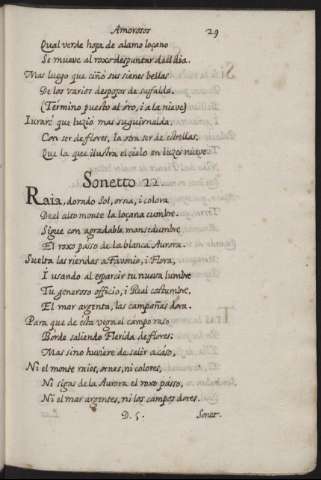 Amorosos 29
Qual verde hoja de alamo loçano
Se mueve al roxo despuntar del dia.
Mas luego que ciñó sus sienes bellas
De los varios despojos de su falda.
(Termino puesto al oro, i a la nieve)
Iuraré que luzió mas su guirnalda
Con ser de flores, la otra ser de estrellas,
Que la que ilustra el cielo en luzes nueve.
Sonetto 22
Raia, dorado Sol, orna, i colora
Del alto monte la loçana cumbre.
Sigue con agradable mansedumbre
El roxo paso de la blanca Aurora.
Suelta las riendas a Favonio, i Flora,
I usando al esparcir tu nueva lumbre
Tu generoso officio, i Real costumbre,
El mar argenta, las campañas dora.
Para que de esta vega el campo raso
Borde saliendo Flerida de flores;
Mas si no huviere de salir acaso,
Ni el monte raies, ornes, ni colores,
Ni sigas de la Aurora el roxo passo,
Ni el mar argentes, ni los campos dores.
D. 5. Sonet.